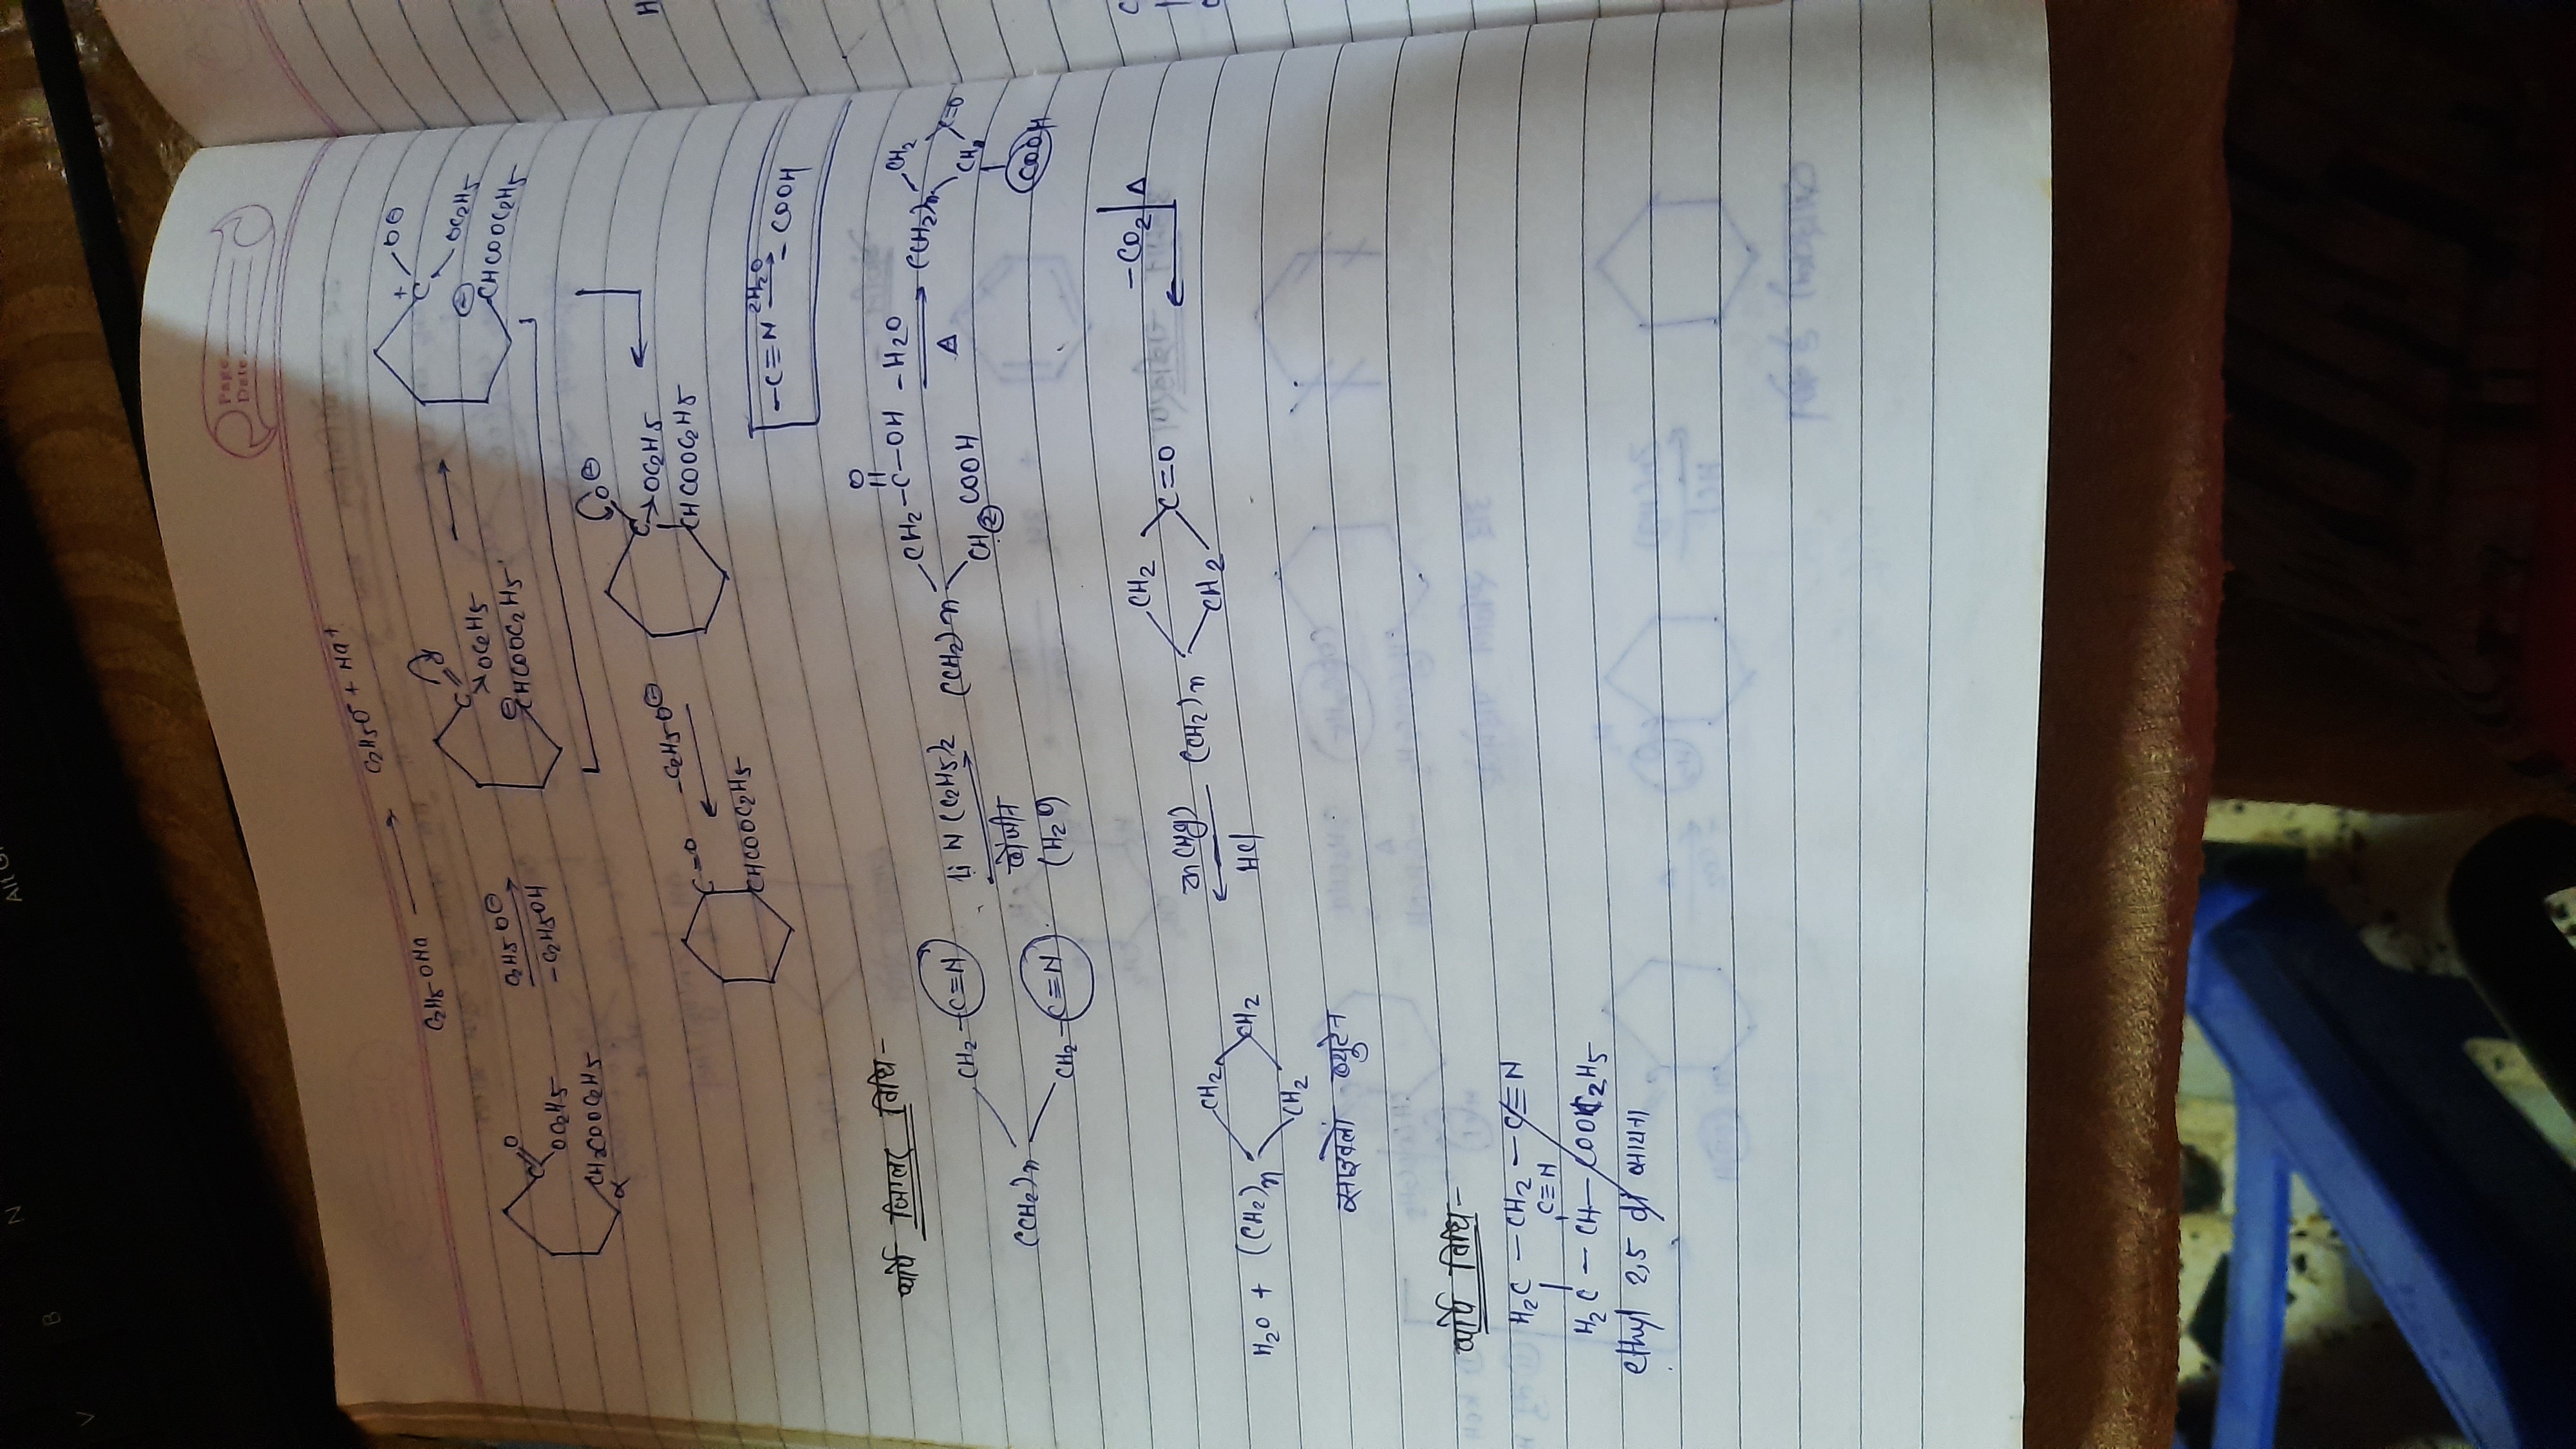 Page
Date
C2H5ONa → C2H5O⁻ + Na⁺
C=O OC2H5 CH2COOC2H5 α C2H5O⊖ -C2H5OH C=O OC2H5 ⊖CHCOOC2H5 → C⁺ O⊖ OC2H5 ⊖ CHCOOC2H5
C=O CHCOOC2H5 ← -C2H5O⊖ C O⊖ OC2H5 CHCOOC2H5 ←
-C≡N 2H2O → -COOH
थोर्प जिग्लर विधि -
(CH2)n CH2-C≡N CH2-C≡N Li N(C2H5)2 → (H2O) (CH2)n CH2-C-OH O CH2COOH -H2O → Δ (CH2)n CH2 C=O CH COOH
-CO2 Δ
H2O + (CH2)n CH2 CH2 CH2 ← Zn(Hg) HCl (CH2)n CH2 C=O CH2 ←
साइक्लो ब्यूटेन
थोर्प विधि -
H2C - CH2 - C≡N
C≡N
H2C - CH - COOC2H5
ethyl 2,5 di सायनो